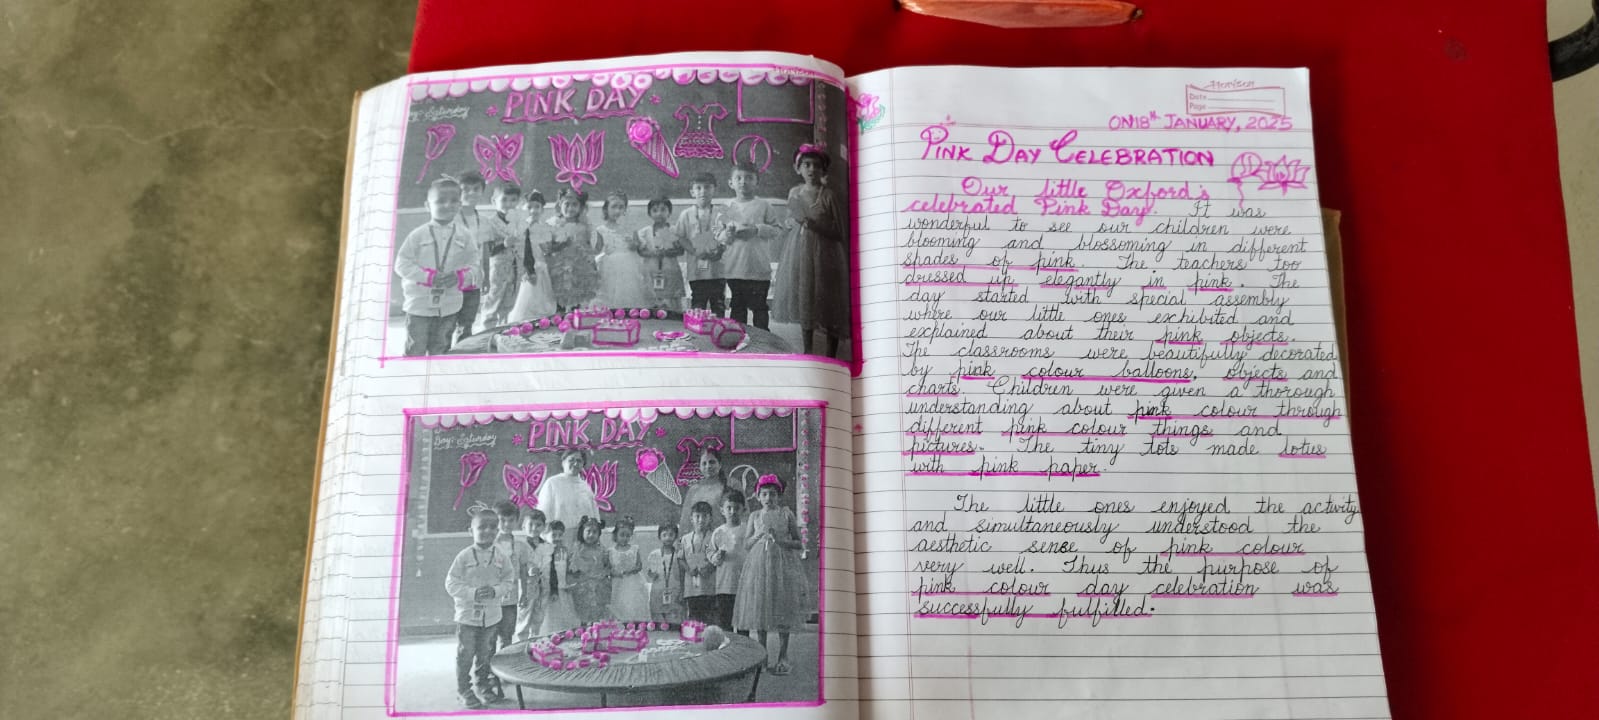 Horizon
PINK DAY
Day: Saturday
PINK DAY
Horizon
Date
Page
ON 18th JANUARY, 2025
PINK DAY CELEBRATION
Our little Oxford's
celebrated Pink Day. It was
wonderful to see our children were
blooming and blossoming in different
shades of pink. The teachers too
dressed up elegantly in pink. The
day started with special assembly
where our little ones exhibited and
explained about their pink objects.
The classrooms were beautifully decorated
by pink colour balloons, objects and
charts. Children were given a thorough
understanding about pink colour through
different pink colour things and
pictures. The tiny tots made lotus
with pink paper.
The little ones enjoyed the activity
and simultaneously understood the
aesthetic sense of pink colour
very well. Thus the purpose of
pink colour day celebration was
successfully fulfilled.